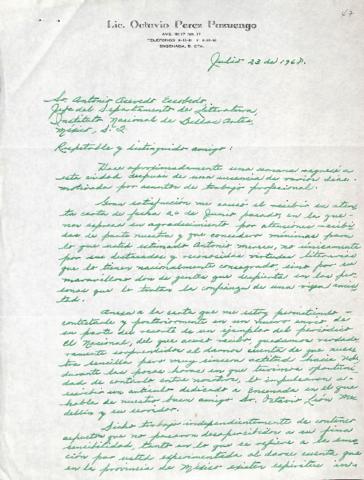 67
Lic. Octavio Perez Pazuengo
AVE. RUIZ NO. 17
ENSENADA, B. CFA.
Julio 23 de 1968.
Sr. Antonio Acevedo Escobedo,
Jefe del Departamento de Literatura,
Instituto Nacional de Bellas Artes
México, D.F.
Respetable y distinguido amigo:
Hace aproximadamente una semana regresé a
esta ciudad después de una ausencia de varios días
motivada por asuntos de trabajo profesional.
Gran satisfacción me causó el recibir su aten-
ta carta de fecha 20 de Junio pasado, en la que
nos expresa su agradecimiento por atenciones recibi-
das de parte nuestra y que considero mínimas para
lo que usted estimado Antonio merece, no únicamente
por sus destacadas y reconocidas virtudes literarias
que lo tienen nacionalmente consagrado, sino por su
maravilloso don de gentes que despierta en las per-
sonas que lo tratan la confianza de una vieja amis-
tad.
Anexa a la carta que me estoy permitiendo
contestarle y posteriormente en un nuevo envío
su parte del recorte de un ejemplar del periódico
El Nacional, del que acuso recibo, quedamos verdade-
ramente sorprendidos al darnos cuenta de que nues-
tra sencilla pero muy sincera actitud hacia usted,
durante las pocas horas en que tuvimos oportuni-
dad de contarlo entre nosotros, lo impulsaron a
escribir un artículo dedicado a Ensenada en el que
habla de nuestro buen amigo Sr. Octavio León Me-
dellín y su servidor.
Dicho trabajo independientemente de contener
aspectos que no pasaron desapercibidos a su fina
sensibilidad, tanto en lo que se refiere a la emo-
ción por usted experimentada al darse cuenta que
en la provincia de México existe espíritu